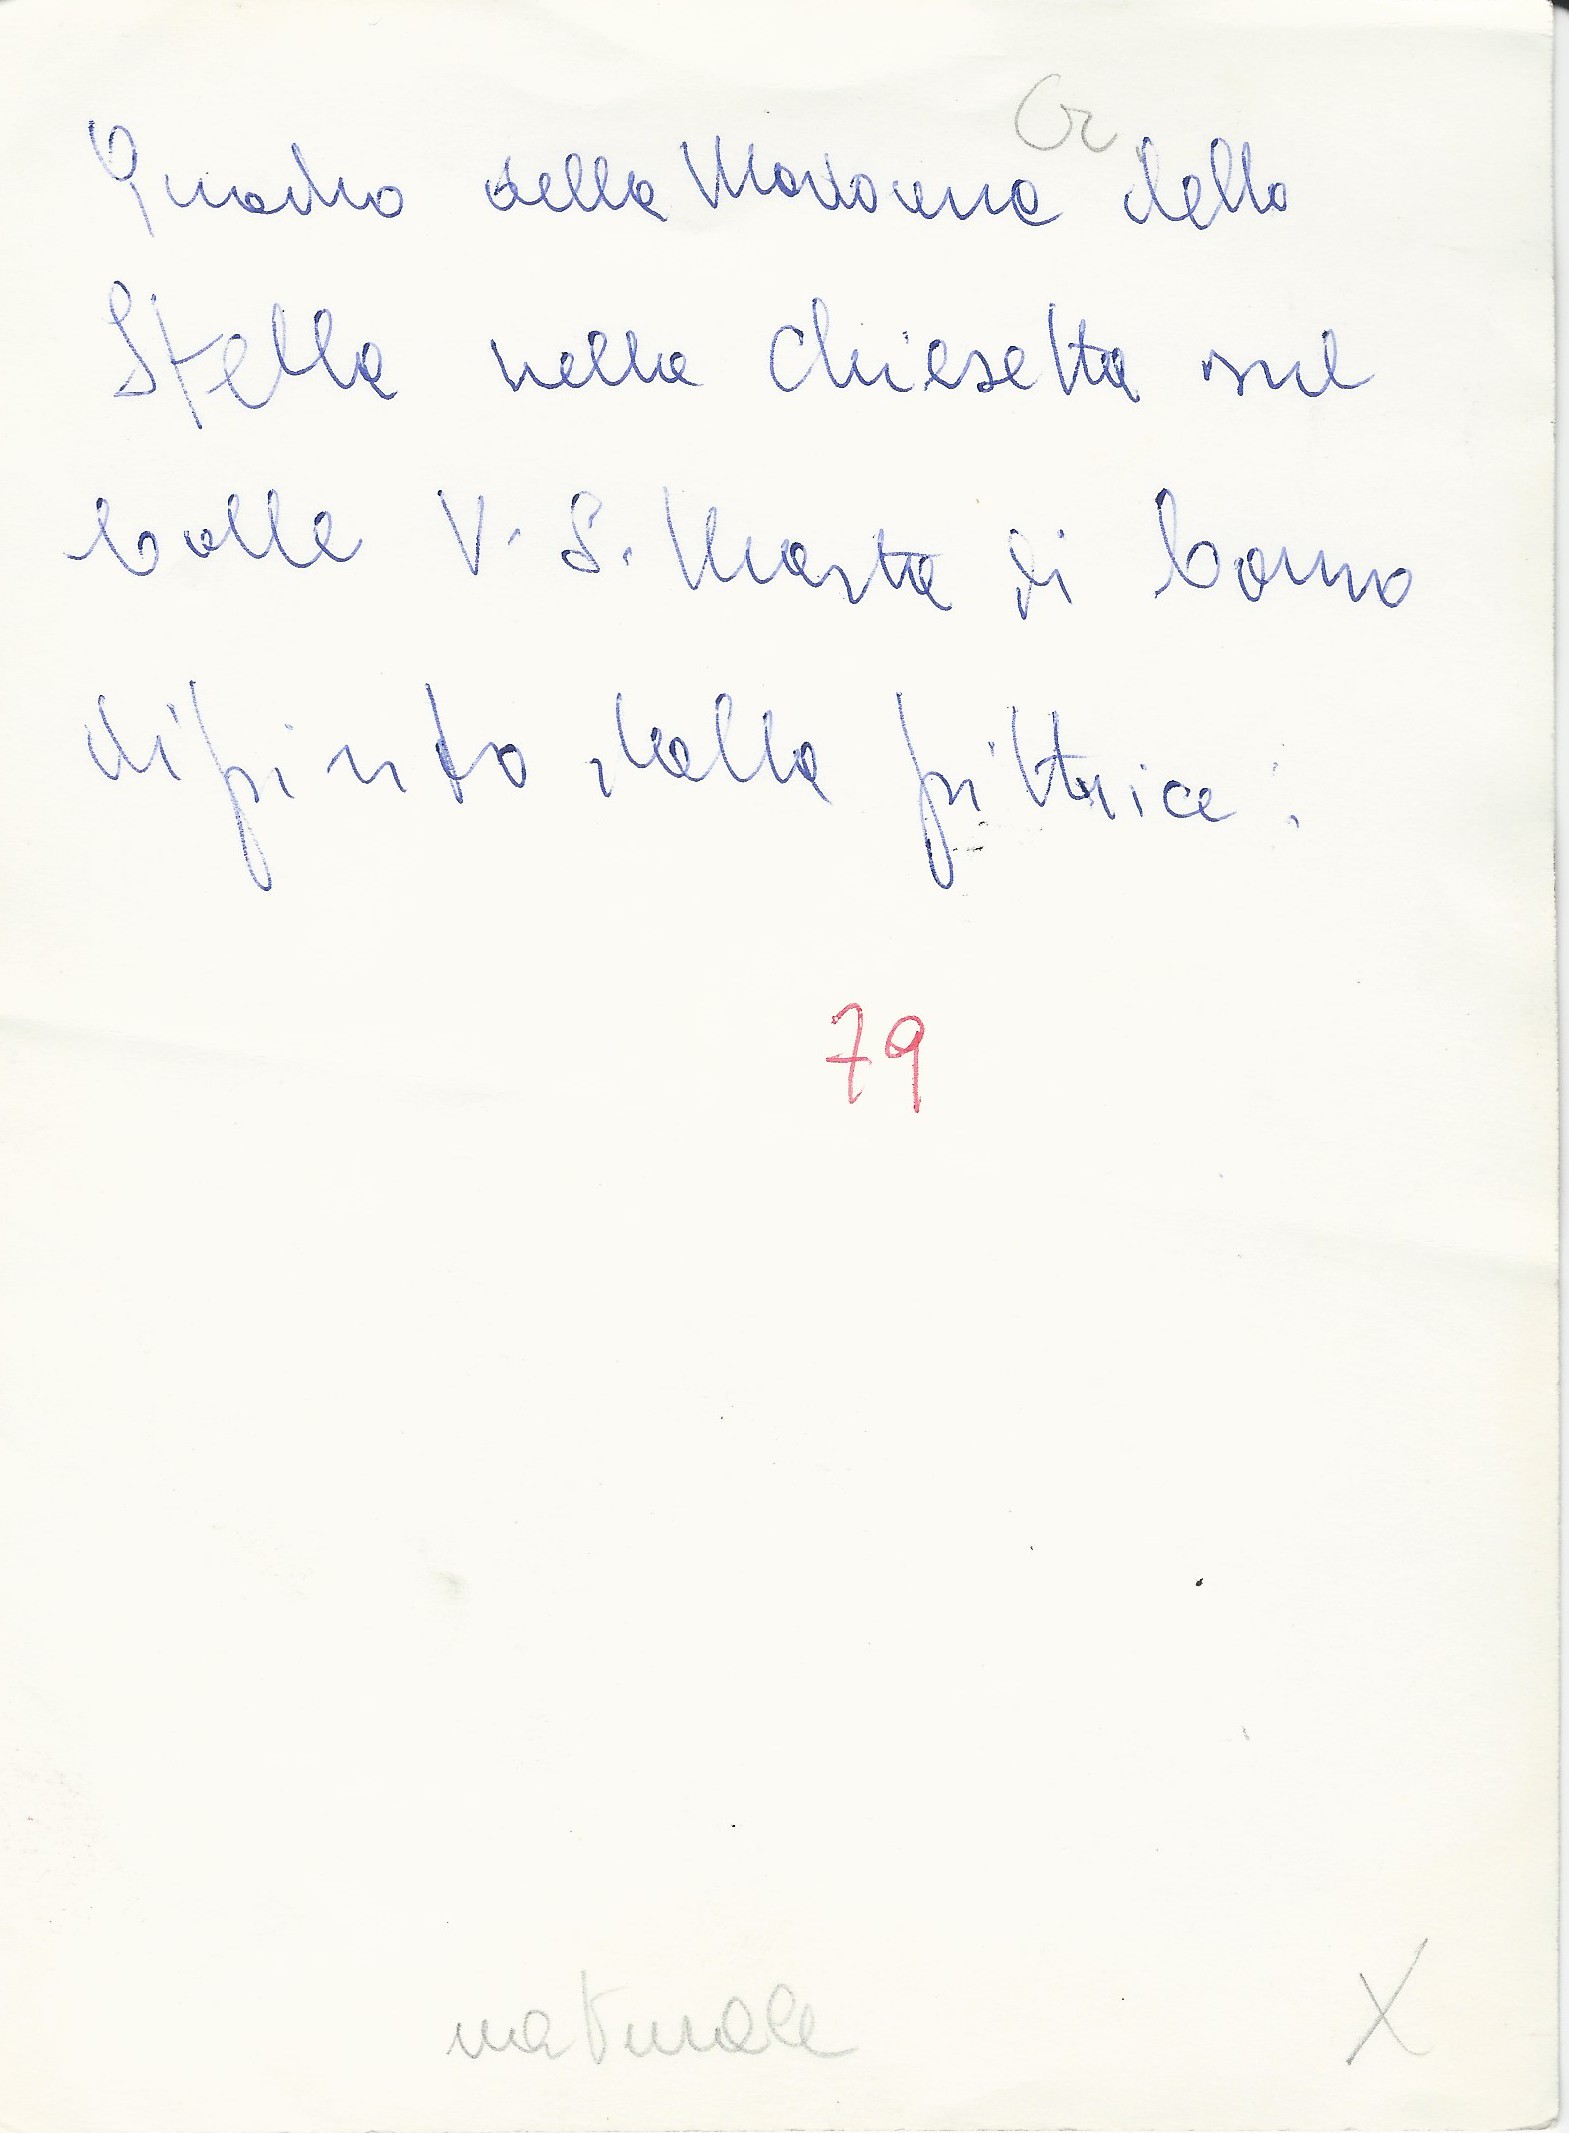 Cr
Quadro della Madonna della
Stella nella Chiesetta sul
Colle V. S. Marta di Como
dipinto dalla pittrice :
79
naturale X